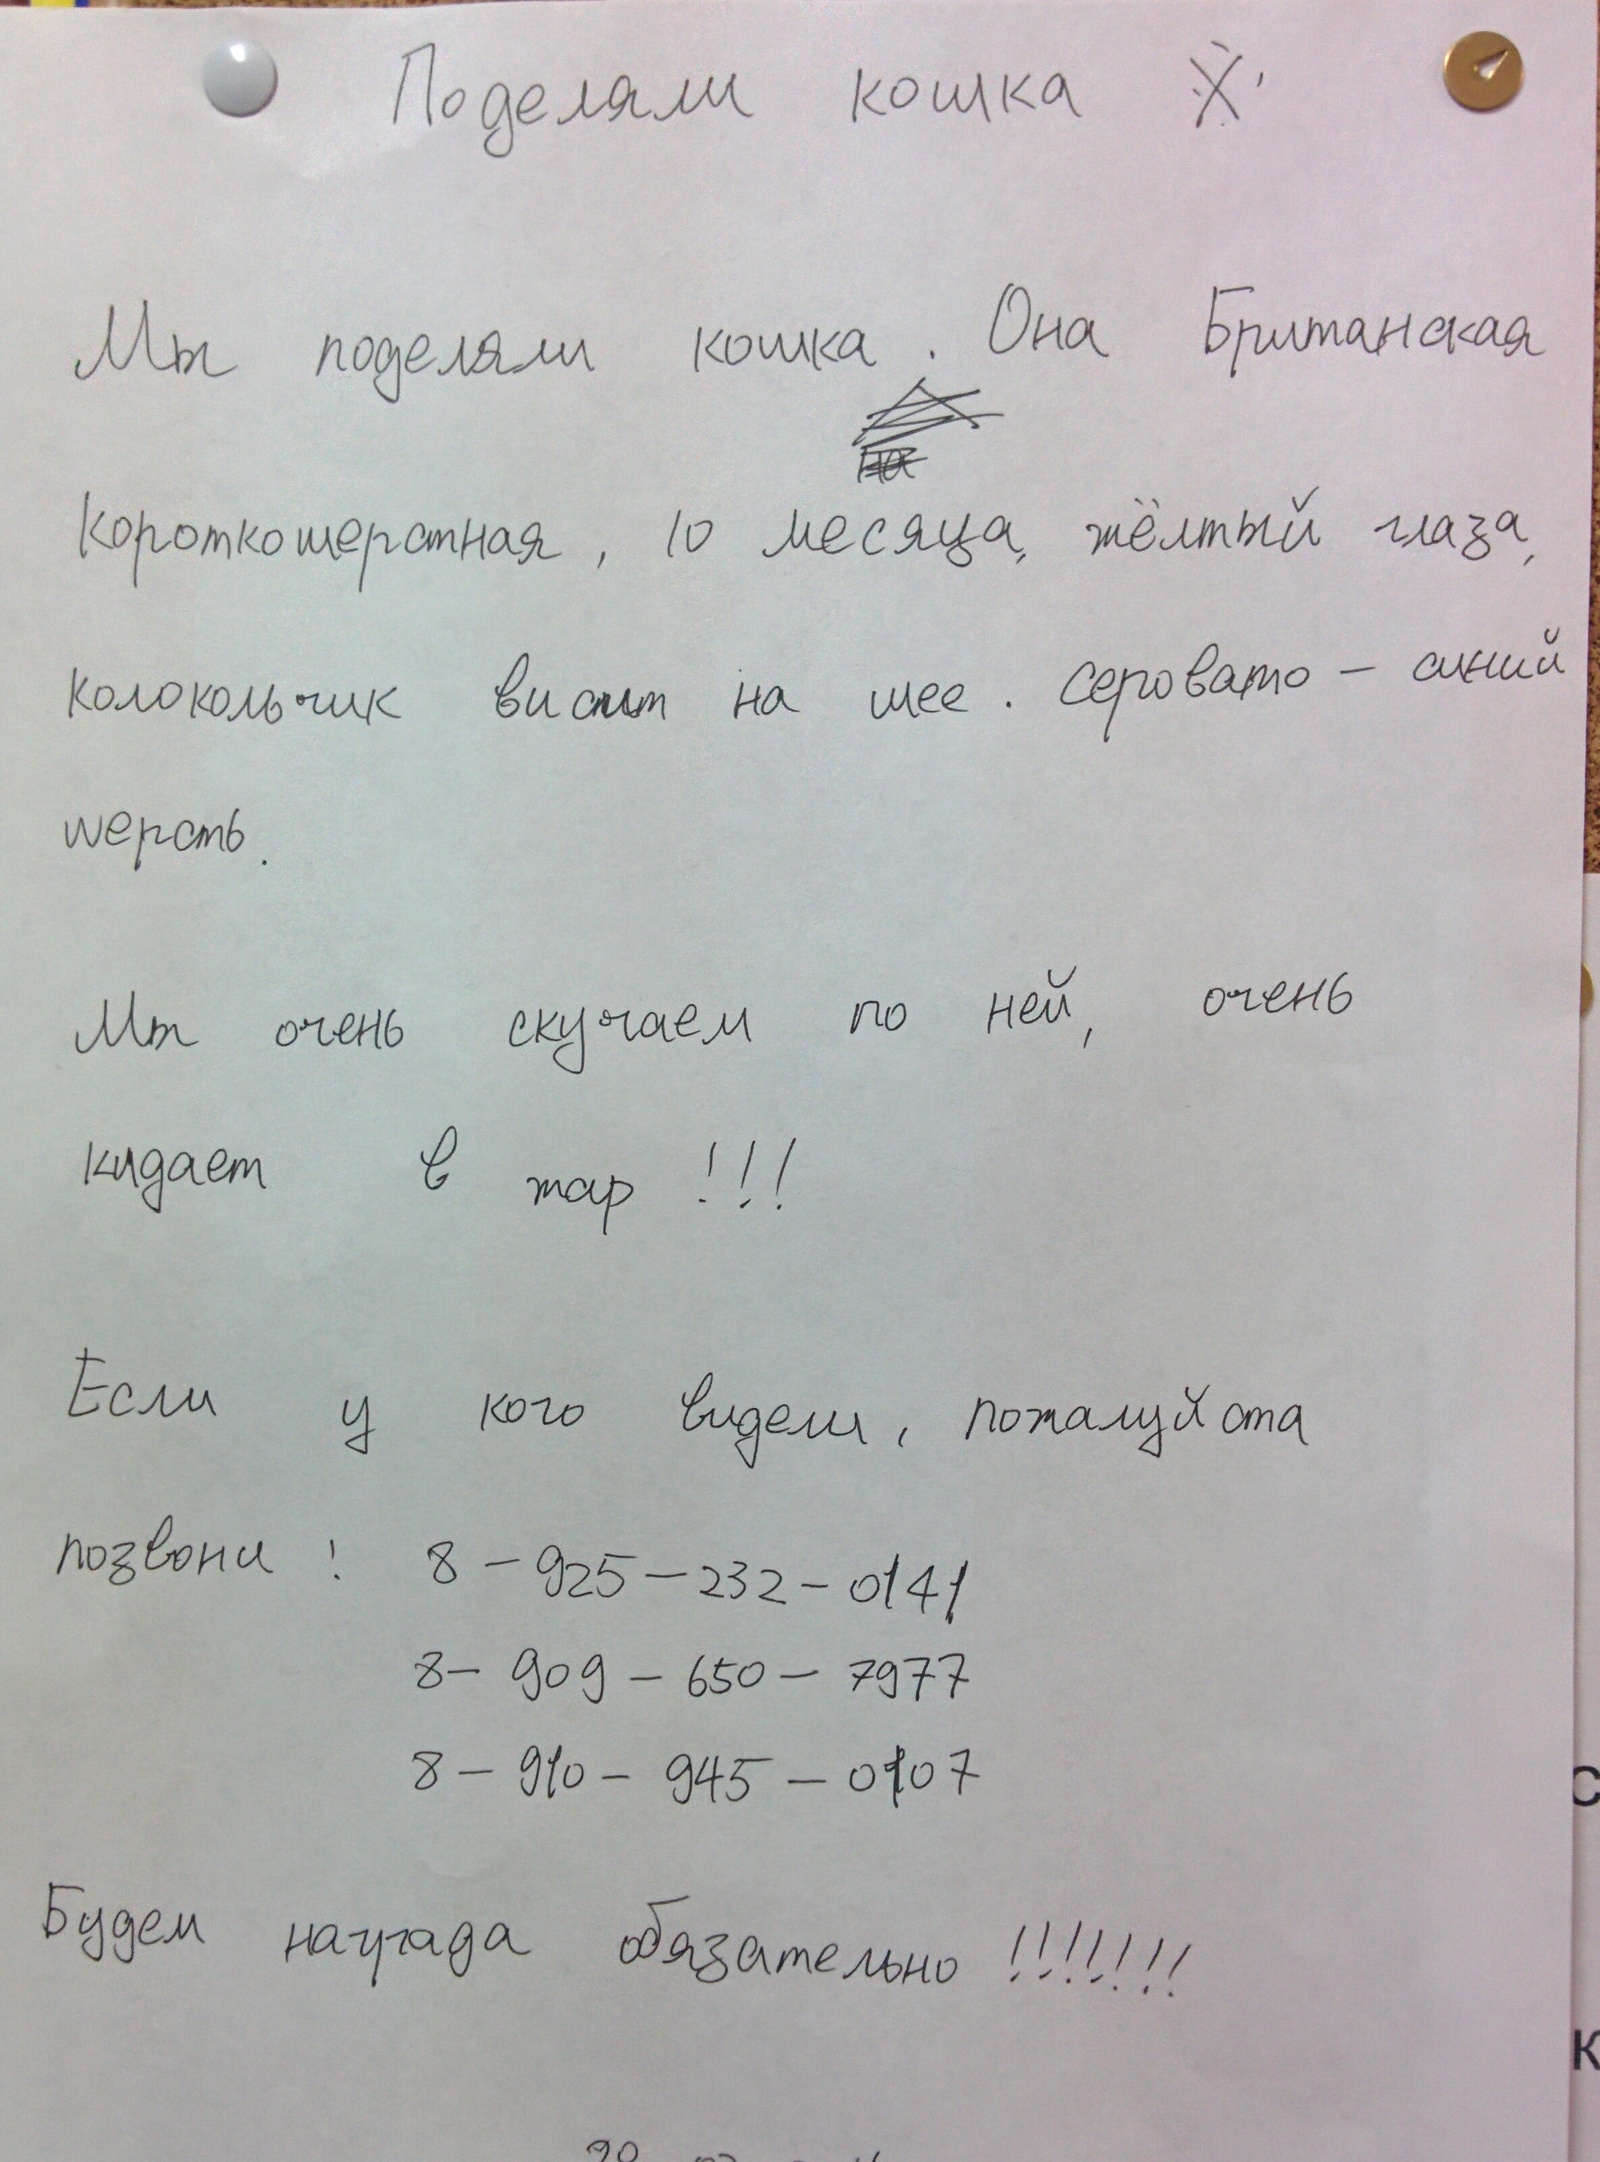 Поделями кошка
Мы поделями кошка. Она Британская
короткошерстная, 10 месяца, жёлтый глаза,
колокольчик висит на шее. серовато - синий
шерсть.
Мы очень скучаем по ней, очень
кидает в жар !!!
Если у кого видем, пожалуйста
позвони! 8-925-232-0141
8-909-650-7977
8-910-945-0107
Будем награда обязательно !!!!!!!
с
к